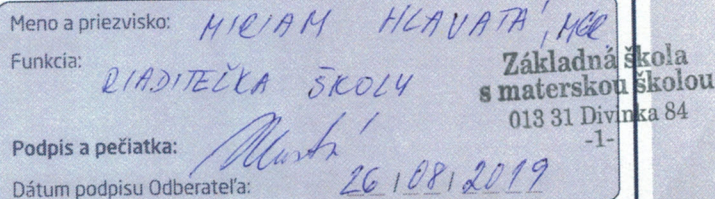 Meno a priezvisko: MIRIAM HLAVATÁ, MGR
Funkcia: RIADITEĽKA ŠKOLY
Základná škola
s materskou školou
013 31 Divinka 84
-1-
Podpis a pečiatka:
Dátum podpisu Odberateľa: 26 | 08 | 2019